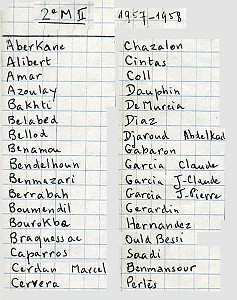 2e M II 1957-1958
Aberkane
Alibert
Amar
Azoulay
Bakhti
Belabed
Bellod
Benamou
Bendelhoun
Benmazari
Berrabah
Boumendil
Bourokba
Braquessac
Caparros
Cerdan Marcel
Cervera
Chazalon
Cintas
Coll
Dauphin
De Murcia
Diaz
Djaroud Abdelkad
Gabaron
Garcia Claude
Garcia J-Claude
Garcia J-Pierre
Gerardin
Hernandez
Ould Bessi
Saadi
Benmansour
Perlès